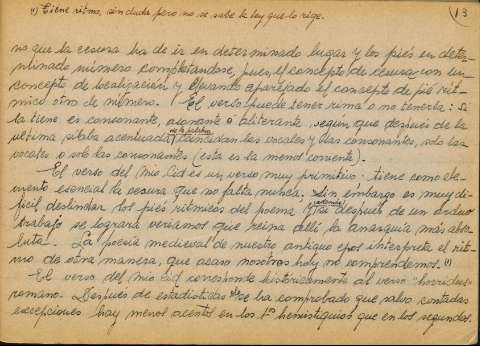 *) Tiene ritmo, sin duda pero no se sabe la ley que lo rige.
13
no que la cesura ha de ir en determinado lugar y los piés en deter-
minado número completandose, pues, el concepto de cesura con un
concepto de localización y llevando aparejado el concepto de pié rít-
mico otro de número. El verso puede tener rima o no tenerla: Si
la tiene es consonante, asonante o aliterante, según que después de la
ultima sílaba acentuada de la palabra coincidan las vocales y las consonantes, solo las
vocales o solo las consonantes (esta es la menos corriente).
El verso del Mio Cid es un verso muy primitivo: tiene como ele-
mento esencial la cesura que no falta nunca; sin embargo es muy di-
ficil deslindar los piés rítmicos del poema y si después de un arduo
trabajo se lograra veriamos que reina allí la anarquía más abso-
luta. La poesía medieval de nuestro antiguo epos interpreta el rit-
mo de otra manera, que acaso nosotros hoy no comprendemos. *)
El verso del mio Cid corresponde históricamente al verso "horridus"
romano. Después de estadísticas se ha comprobado que salvo contadas
excepciones hay menos acentos en los 1os hemistiquios que en los segundos.